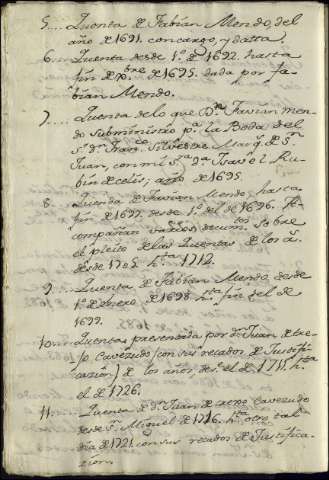 5.... Quenta de Fabian Mendo, del
año de 1691. con cargo, y datta.
6.. Quenta desde 1.º de 1692. hasta
fin de Xbre de 1695. dada por fa-
bian Mendo.
7.. Quenta de lo que Dn. Favian men-
do subministro pa. la Boda del
Sr. Dn. Franco. Silvestre Marq. de Sn.
Juan, con mi Sa. Da. Isavel Ru-
bin de Celis; año de 1695.
8. Quenta de Favian Mendo, hasta
fin de 1697. desde 1.º del de 1696. A-
compañan varios docum.tos sobre
el pleito de las Quentas de los a.s
desde 1705. hta. 1712.
9.. Quenta de Fabian Mendo, desde
1.º de enero de 1698. hta. fin del de
1699.
10.. Quentas presentada por Dn. Juan de tre-
Cavezudo (con sus recados de Justifi-
cacion) de los años, de el de 1715. hta
el de 1726.
11.. Quenta de Dn. Juan de Cavezudo
desde Sn. Miguel de 1716. hta. otro tal
dia de 1721. con sus recados de Justifica-
cion.